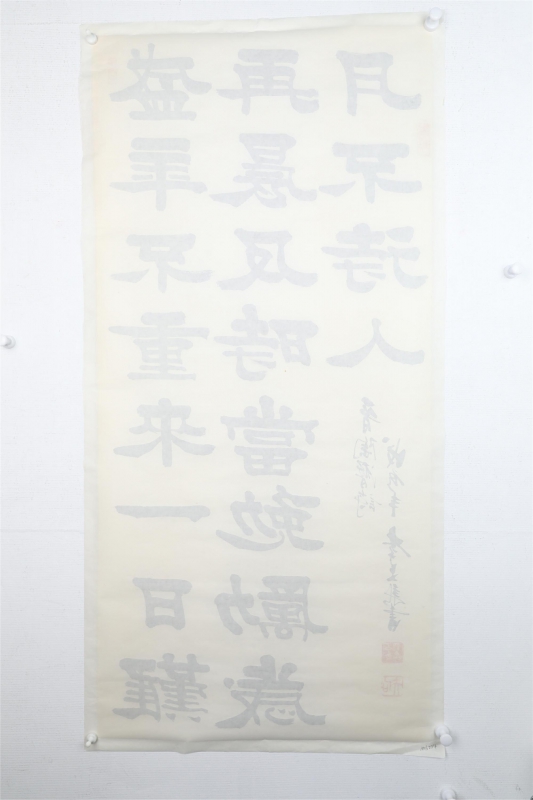 盛年不重来一日難
再晨及時當勉勵歲
月不待人